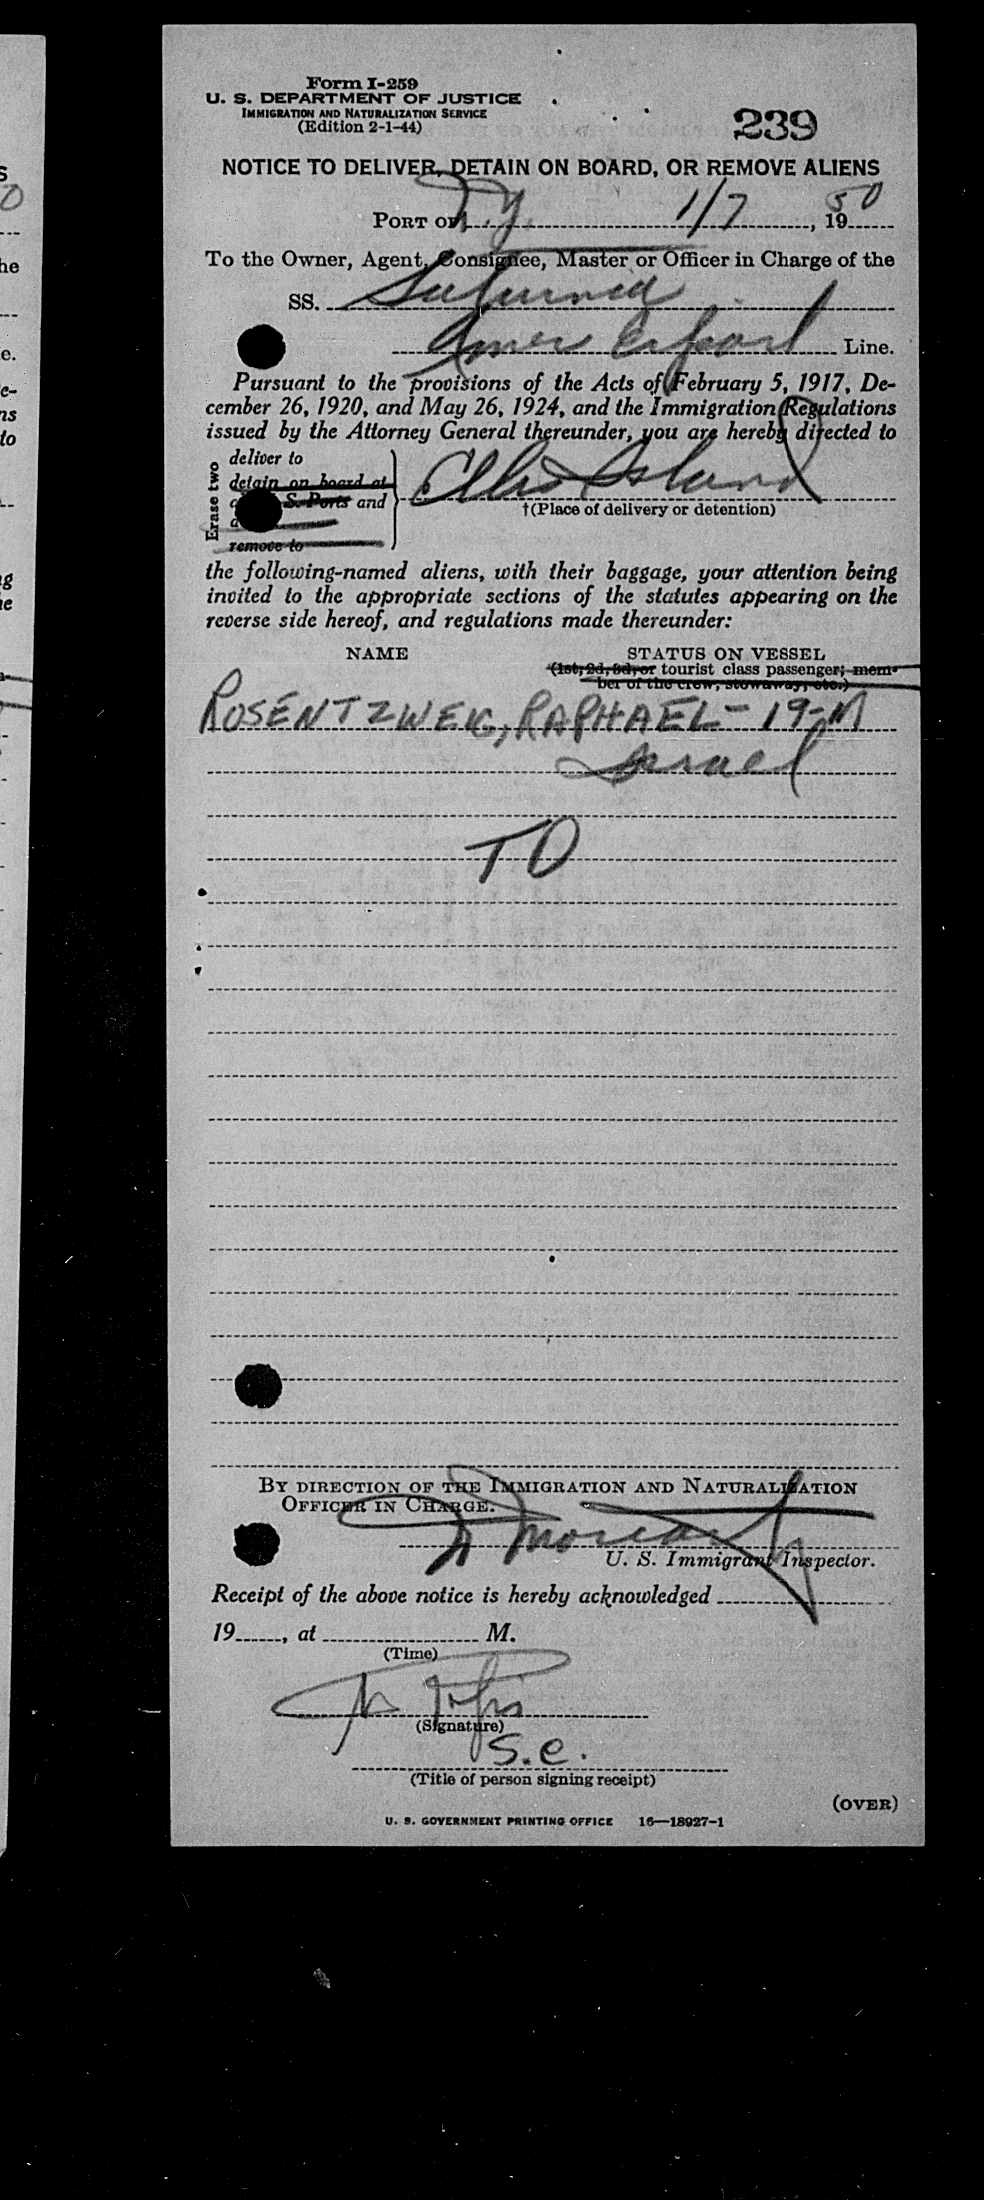 Form I-259
U. S. DEPARTMENT OF JUSTICE
IMMIGRATION AND NATURALIZATION SERVICE
(Edition 2-1-44)
239
NOTICE TO DELIVER, DETAIN ON BOARD, OR REMOVE ALIENS
PORT OF N.Y. 1/7, 1950
To the Owner, Agent, Consignee, Master or Officer in Charge of the
SS. Saturnia
Amer Export Line.
Pursuant to the provisions of the Acts of February 5, 1917, De-
cember 26, 1920, and May 26, 1924, and the Immigration Regulations
issued by the Attorney General thereunder, you are hereby directed to
Erase two
deliver to
detain on board at
S. Ports and
remove to
Ellis Island
†(Place of delivery or detention)
the following-named aliens, with their baggage, your attention being
invited to the appropriate sections of the statutes appearing on the
reverse side hereof, and regulations made thereunder:
NAME STATUS ON VESSEL
(1st, 2d, 3d, or tourist class passenger; mem-
ber of the crew, stowaway, etc.)
ROSENTZWEIG, RAPHAEL - 19-M
Israel
TD
BY DIRECTION OF THE IMMIGRATION AND NATURALIZATION
OFFICER IN CHARGE.
U. S. Immigrant Inspector.
Receipt of the above notice is hereby acknowledged
19, at M.
(Time)
(Signature)
S.E.
(Title of person signing receipt)
(OVER)
U. S. GOVERNMENT PRINTING OFFICE 16—18927-1